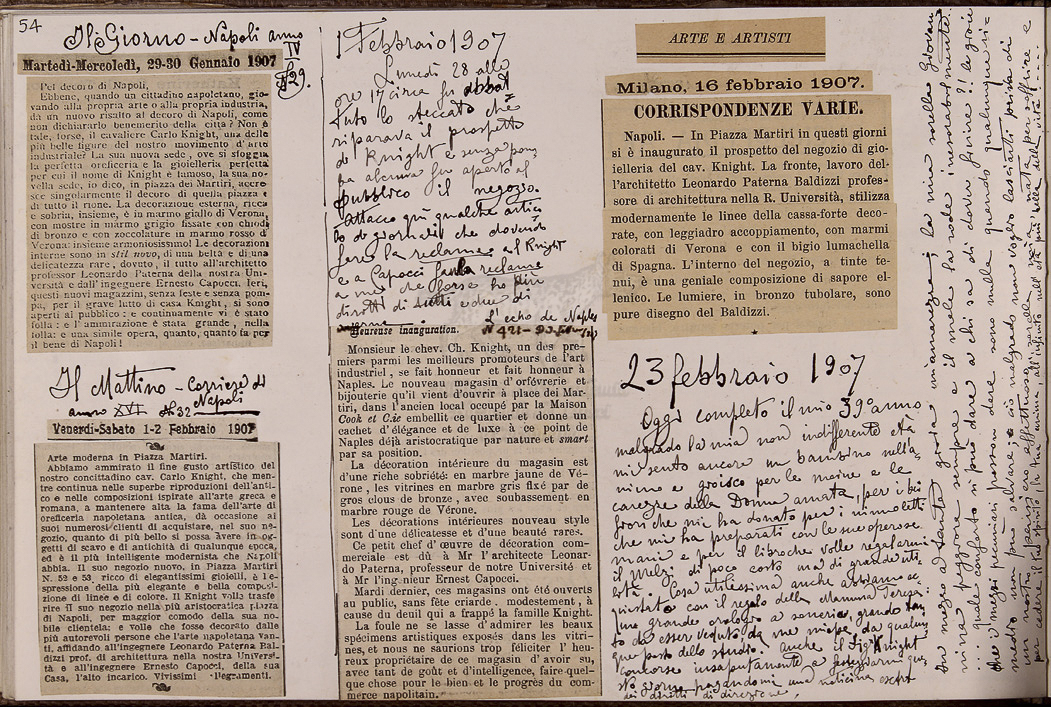 54
Il Giorno - Napoli anno IV
N 29.
Martedì-Mercoledì, 29-30 Gennaio 1907
Pel decoro di Napoli,
Ebbene, quando un cittadino napoletano, gio-
vando alla propria arte o alla propria industria,
dà un nuovo risalto al decoro di Napoli, come
non dichiararlo benemerito della città? Non è
tale, forse, il cavaliere Carlo Knight, una delle
più belle figure del nostro movimento d'arte
industriale? La sua nuova sede, ove si sfoggia
la perfetta oreficeria e la gioielleria perfetta
per cui il nome di Knight è famoso, la sua no-
vella sede, io dico, in piazza dei Martiri, accre-
sce singolarmente il decoro di quella piazza e
di tutto il rione. La decorazione esterna, ricca
e sobria, insieme, è in marmo giallo di Verona,
con mostre in marmo grigio fissate con chiodi
di bronzo e con zoccolature in marmo rosso di
Verona: insieme armoniosissimo! Le decorazioni
interne sono in stil novo, di una beltà e di una
delicatezza rare, dovuto, il tutto all'architetto
professor Leonardo Paterna della nostra Uni-
versità e dall'ingegnere Ernesto Capocci. Ieri,
questi nuovi magazzini, senza feste e senza pom-
pa, per il grave lutto di casa Knight, si sono
aperti al pubblico: e continuamente vi è stato
folla: e l'ammirazione è stata grande, nella
folla: e una simile opera, quanto, quanto fa per
il bene di Napoli!
Il Mattino - Corriere di Napoli
anno XVI N. 32
Venerdì-Sabato 1-2 Febbraio 1907
Arte moderna in Piazza Martiri.
Abbiamo ammirato il fine gusto artistico del
nostro concittadino cav. Carlo Knight, che men-
tre continua nelle superbe riproduzioni dell'anti-
co e nelle composizioni ispirate all'arte greca e
romana, a mantenere alta la fama dell'arte di
oreficeria napoletana antica, dà occasione ai
suoi numerosi clienti di acquistare, nel suo ne-
gozio, quanto di più bello si possa avere in og-
getti di scavo e di antichità di qualunque epoca,
ed è il più intelligente modernista che Napoli
abbia. Il suo negozio nuovo, in Piazza Martiri
N. 52 e 53, ricco di elegantissimi gioielli, è l'e-
spressione della più elegante e bella composi-
zione di linee e di colore. Il Knight volla trasfe-
rire il suo negozio nella più aristocratica piazza
di Napoli, per maggior comodo della sua no-
bile clientela: e volle che fosse decorato dallo
più autorevoli persone che l'arte napoletana van-
ti, affidando all'ingegnere Leonardo Paterna Bal-
dizzi prof. di architettura nella nostra Universi-
tà e all'ingegnere Ernesto Capocci, della sua
Casa, l'alto incarico. Vivissimi rallegramenti.
1 Febbraio 1907
Lunedì 28 alle
ore 17 circa fu abbat-
tuto lo steccato che
riparava il prospetto
di Knight e senza pom-
pa alcuna fu aperto al
pubblico il negozio.
Attacco qui qualche artico-
lo di giornali che dovendo
fare la reclame al Knight
e a Capocci fanno reclame
a me che forse ho più
diritto di tutti e due di
L'echo de Naples
N 421
Heureuse inauguration.
Monsieur le chev. Ch. Knight, un des pre-
miers parmi les meilleurs promoteurs de l'art
industriel, se fait honneur et fait honneur à
Naples. Le nouveau magasin d'orfévrerie et
bijouterie qu'il vient d'ouvrir à place dei Mar-
tiri, dans l'ancien local occupé par la Maison
Cook et C.ie embellit ce quartier et donne un
cachet d'élégance et de luxe à ce point de
Naples déjà aristocratique par nature et smart
par sa position.
La décoration intérieure du magasin est
d'une riche sobriété: en marbre jaune de Vé-
rone, les vitrines en marbre gris fixé par de
gros clous de bronze, avec soubassement en
marbre rouge de Vérone.
Les décorations intérieures nouveau style
sont d'une délicatesse et d'une beauté rares.
Ce petit chef d'œuvre de décoration com-
merciale est dû à Mr l'architecte Leonar-
do Paterna, professeur de notre Université et
à Mr l'ingenieur Ernest Capocci.
Mardi dernier, ces magasins ont été ouverts
au public, sans fête criarde, modestement, à
cause du deuil qui a frappé la famille Knight.
La foule ne se lasse d'admirer les beaux
spécimens artistiques exposés dans les vitri-
nes, et nous ne saurions trop féliciter l'heu-
reux propriétaire de ce magasin d'avoir su,
avec tant de goût et d'intelligence, faire quel-
que chose pour le bien et le progrès du com-
merce napolitain.
ARTE E ARTISTI
Milano, 16 febbraio 1907.
CORRISPONDENZE VARIE.
Napoli. — In Piazza Martiri in questi giorni
si è inaugurato il prospetto del negozio di gio-
ielleria del cav. Knight. La fronte, lavoro del-
l'architetto Leonardo Paterna Baldizzi profes-
sore di architettura nella R. Università, stilizza
modernamente le linee della cassa-forte deco-
rate, con leggiadro accoppiamento, con marmi
colorati di Verona e con il bigio lumachella
di Spagna. L'interno del negozio, a tinte te-
nui, è una geniale composizione di sapore el-
lenico. Le lumiere, in bronzo tubolare, sono
pure disegno del Baldizzi.
23 febbraio 1907
Oggi completo il mio 39° anno
malgrado la mia non indifferente età
mi sento ancora un bambino nell'a-
nimo e gioisco per le moine e le
carezze della Donna amata, per i bei
fiori che mi ha donato per i
che mi ha preparati con le sue operose
mani e per il libro che volle regalarmi
il Melzi di poco costo ma di grande uti-
lità. Cosa utilissima anche abbiamo ac-
quistato con il regalo della Mamma Teresa:
Uno grande orologio a soneria, grande tan-
to da esser veduto da me miope, da qualun-
que posto dello studio. Anche il Sig Knight
concorse insaputamente a festeggiarmi que-
sto giorno pagandomi una noticina
dei diritti di direzione.
In mezzo a tanta gioia una amarezza; la mia sorella Giovan-
nina peggiora sempre e il male la rode inesorabilmente.
quale conforto si può dare a chi sa di dover finire?! le gioie
ed i mezzi pecuniari possono dare sono nulla quando qualunque ri-
medio non può salvare; e ciò malgrado non voglio lasciarti priva di
un nostro pensiero affettuoso, di una parola